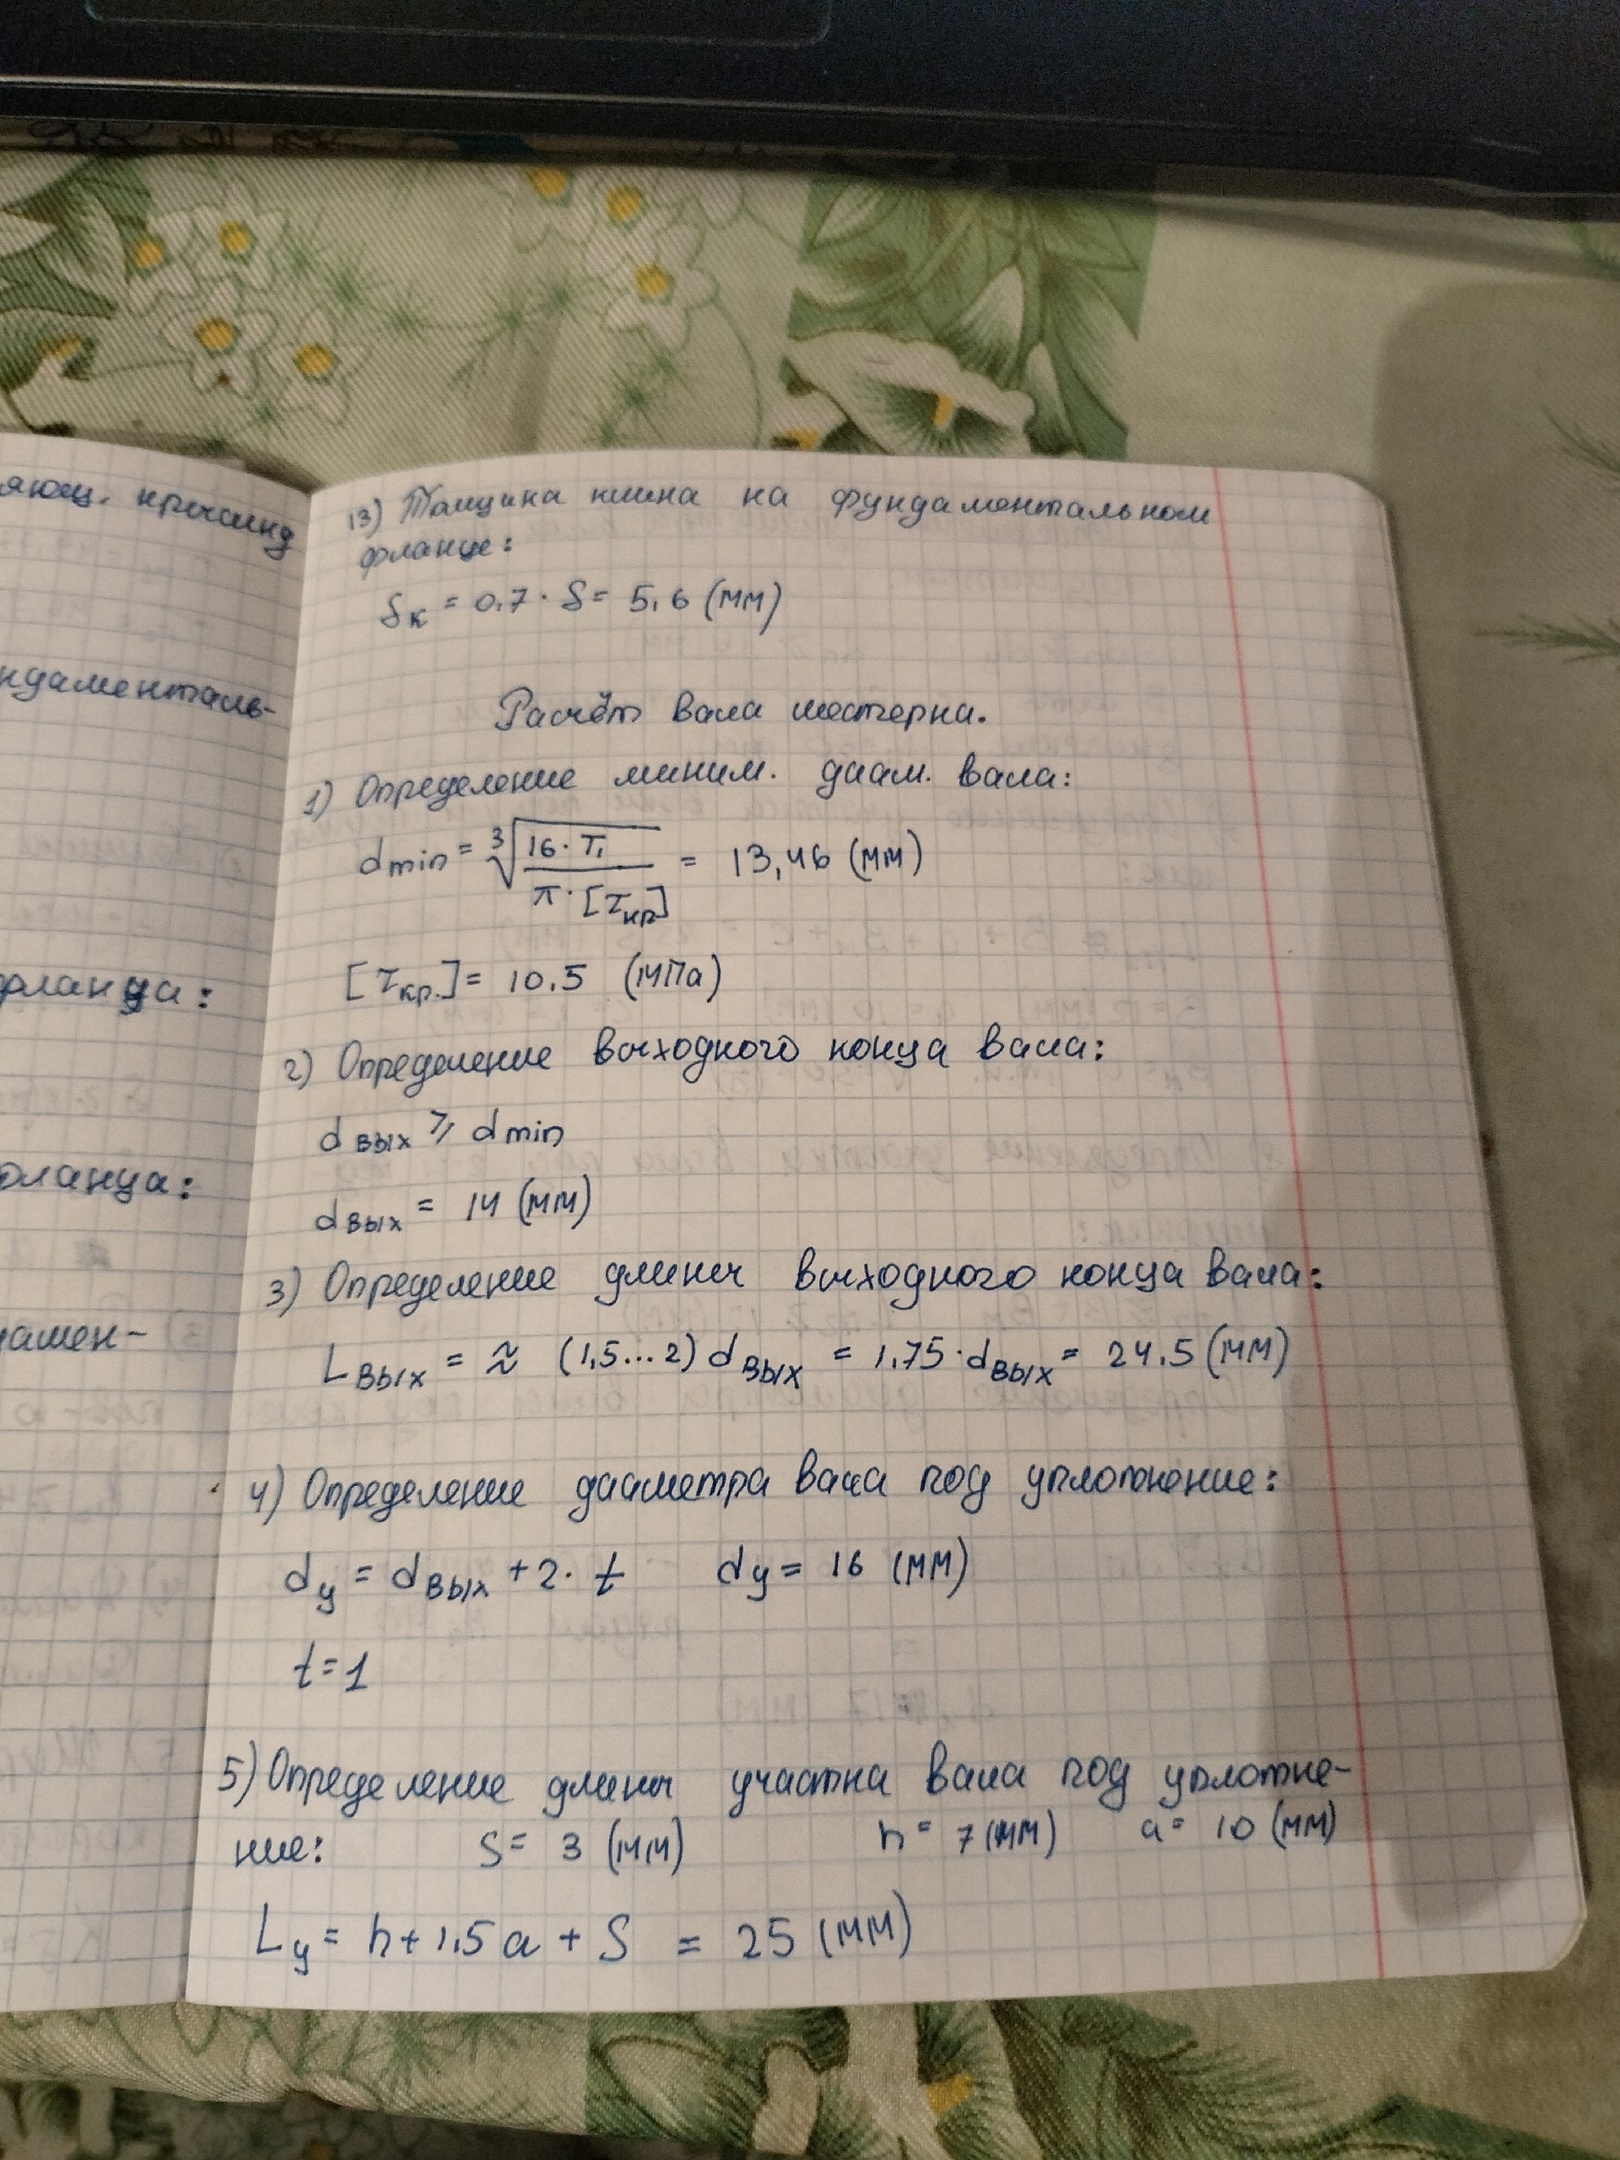 яющ.
ндаменталь-
фланца:
фланца:
дамен-
13) Толщина клина на фундаментальном
фланце:
δк = 0,7 · δ = 5,6 (мм)
Расчёт вала шестерни.
1) Определение миним. диам. вала:
dmin = ∛(16 · T₁ / π · [τкр]) = 13,46 (мм)
[τкр.] = 10.5 (МПа)
2) Определение выходного конца вала:
dвых ⩾ dmin
dвых = 14 (мм)
3) Определение длины выходного конца вала:
Lвых = ≈ (1,5...2) dвых = 1,75 · dвых = 24.5 (мм)
4) Определение диаметра вала под уплотнение:
dу = dвых + 2 · t dу = 16 (мм)
t = 1
5) Определение длины участка вала под уплотне-
ние: S = 3 (мм) h = 7 (мм) a = 10 (мм)
Lу = h + 1,5a + S = 25 (мм)